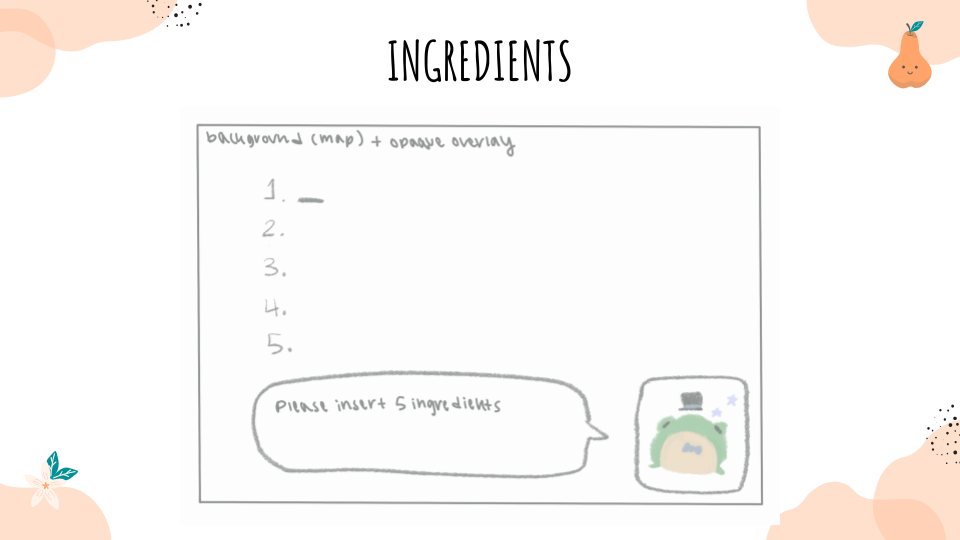 INGREDIENTS
background (map) + opaque overlay
1. _
2.
3.
4.
5.
Please insert 5 ingredients